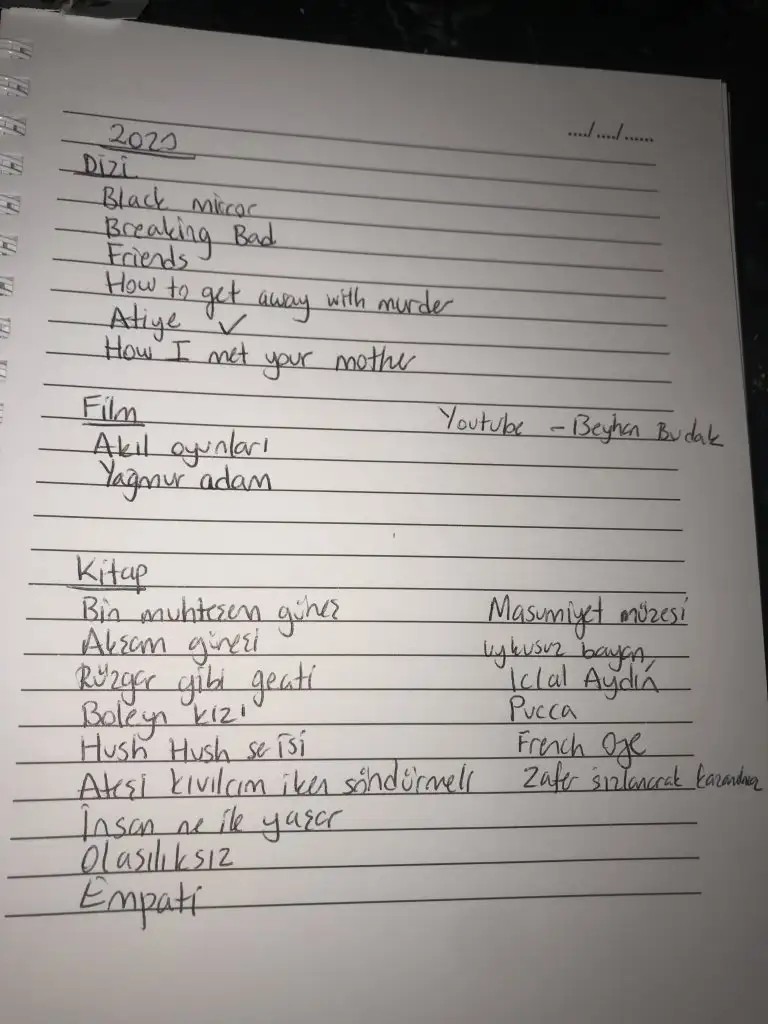 ..../..../......
2020
Dizi
Black mirror
Breaking Bad
Friends
How to get away with murder
Atiye ✓
How I met your mother
Film
Youtube - Beyhan Budak
Akıl oyunları
Yağmur adam
Kitap
Bin muhteşem güneş
Masumiyet müzesi
Akşam güneşi
uykusuz bayan
Rüzgar gibi geçti
Iclal Aydın
Boleyn kızı
Pucca
Hush Hush serisi
French Oje
Ateşi kıvılcım iken söndürmeli
Zafer sızlanarak kazanılmaz
İnsan ne ile yaşar
Olasılıksız
Empati